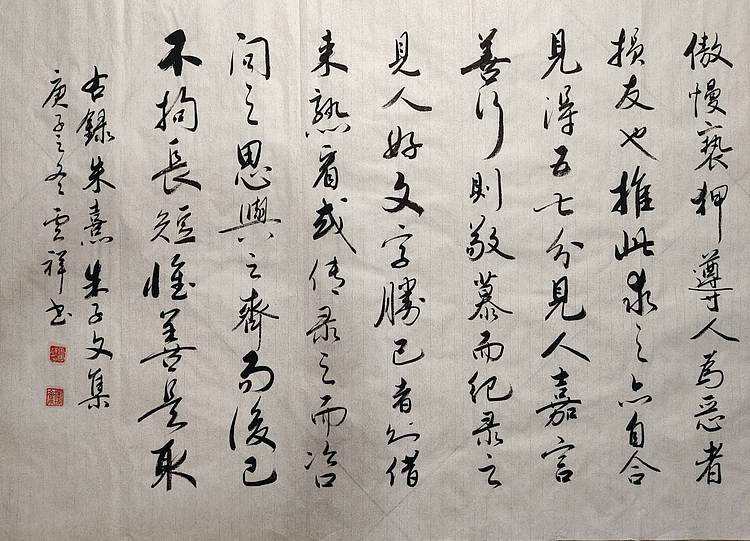 傲慢亵狎導人為惡者
損友也推此求之亦自合
見得五七分見人嘉言
善行則敬慕而纪录之
見人好文字勝己者则借
来熟看或传录之而咨
问之思與之齊而後已
不拘長短惟善是取
右錄朱熹朱子文集
庚子之冬雲祥书